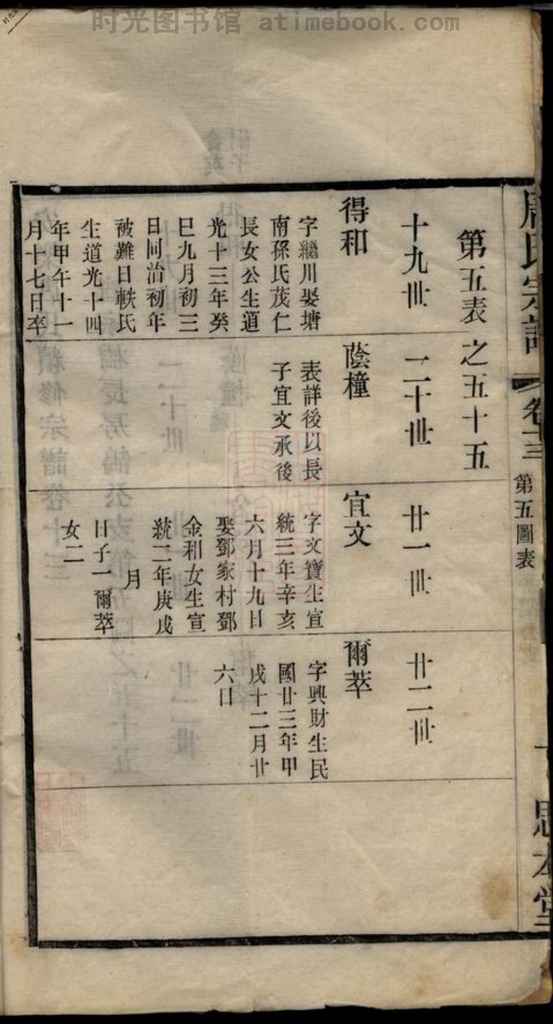 时光图书馆 atimebook.com
周氏宗譜
卷十三
第五圖表
思本堂
第五表之五十五
十九世
得和
字繼川娶塘
南孫氏茂仁
長女公生道
光十三年癸
巳九月初三
日同治初年
被難日軼氏
生道光十四
年甲午十一
月十七日卒
二十世
蔭橦
表詳後以長
子宜文承後
廿一世
宜文
字文寶生宣
統三年辛亥
六月十九日
娶鄧家村鄧
金和女生宣
統二年庚戌
月
日子一爾萃
女二
廿二世
爾萃
字興財生民
國廿三年甲
戌十二月廿
六日